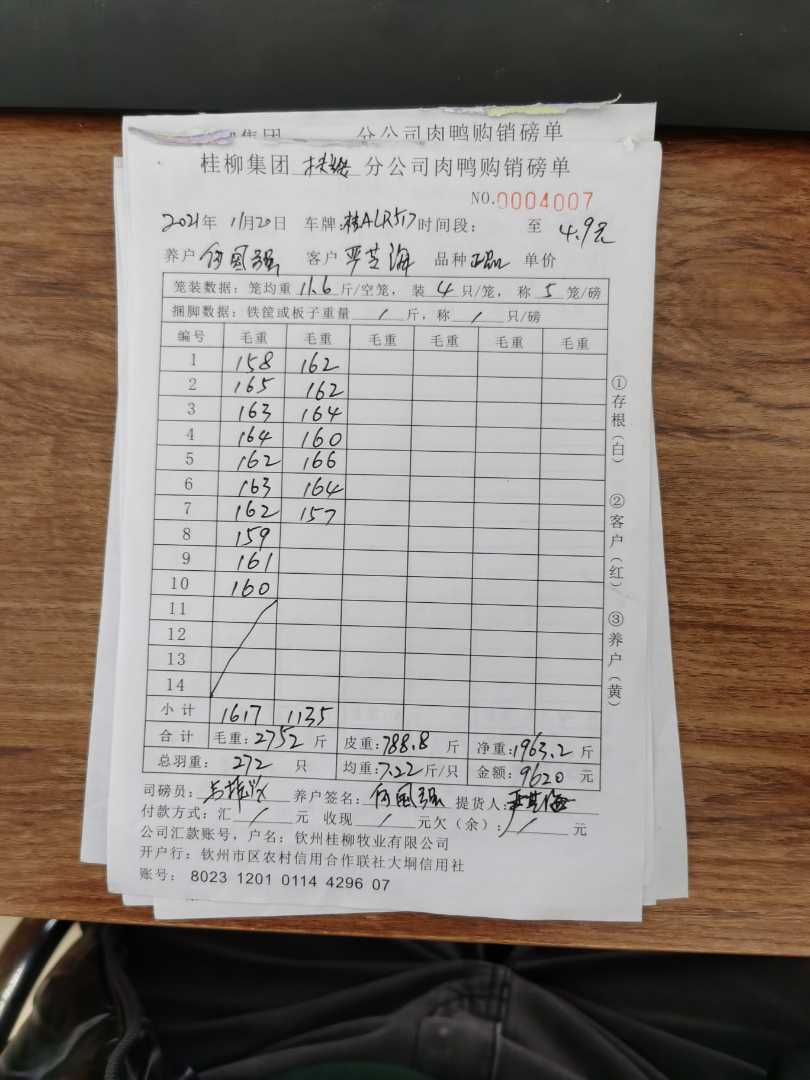 集团 分公司肉鸭购销磅单
桂柳集团 分公司肉鸭购销磅单
NO.0004007
2021年 11月20日 车牌:桂ALR517 时间段: 至 4.9元
养户 何国强 客户 严芝海 品种 正品 单价
笼装数据:笼均重 11.6 斤/空笼, 装 4 只/笼, 称 5 笼/磅
捆脚数据:铁筐或板子重量 / 斤,称 / 只/磅
编号 毛重 毛重 毛重 毛重 毛重 毛重
1 158 162
2 165 162
3 163 164
4 164 160
5 162 166
6 163 164
7 162 157
8 159
9 161
10 160
11
12
13
14
小计 1617 1135
合计 毛重:2752 斤 皮重:788.8 斤 净重:1963.2 斤
总羽重: 272 只 均重:7.22 斤/只 金额:9620 元
司磅员: 养户签名:何国强 提货人:严芝海
付款方式:汇 / 元 收现 / 元欠(余): / 元
公司汇款账号,户名:钦州桂柳牧业有限公司
开户行:钦州市区农村信用合作联社大垌信用社
账号: 8023 1201 0114 4296 07
①存根(白) ②客户(红) ③养户(黄)